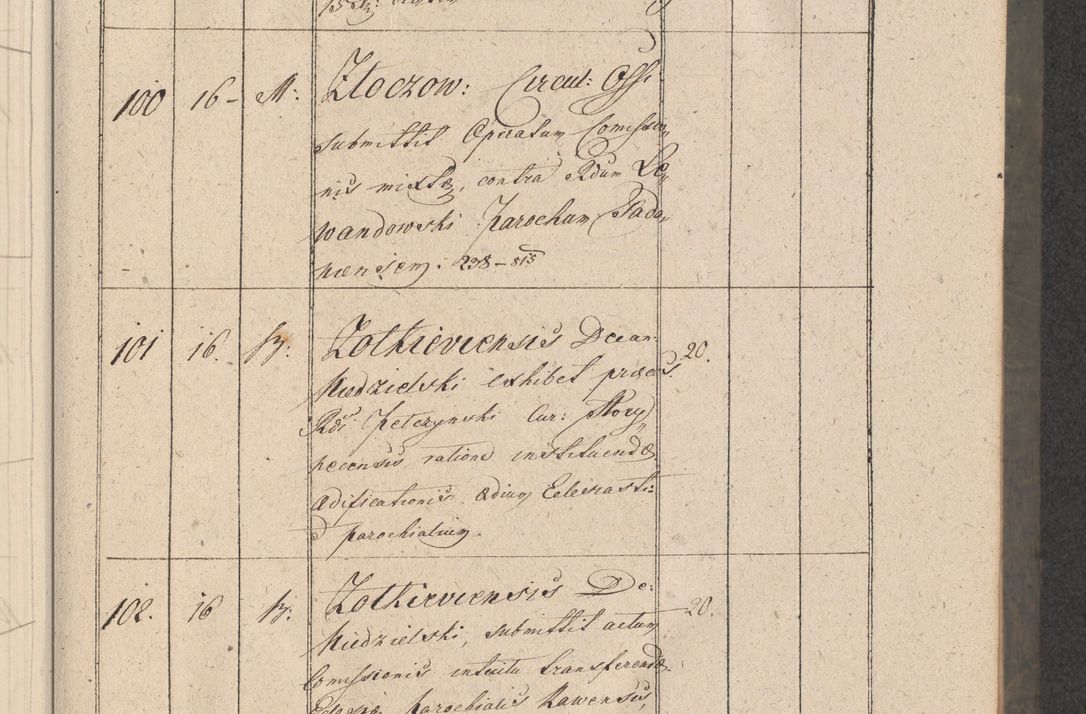 100 16- M: Złoczow: Circul: Offi:
submittit Operatum Comissio„
nis mixtæ, contra Rdum Le„
wandowski Parochum Sada„
238–815
101 16. Żołkieviensis Decan: 20.
Niedzielski exhibet preces
Rdi Petczynski Cur:
ratione instituendæ
ædificationis ædium Ecclesiasti:
parochialium.
102. 16 Żołkieviensis De: 20.
Niedzielski, submittit actum
Comissionis intuitu transferendæ
Ecclesiæ parochialis Rawensis,